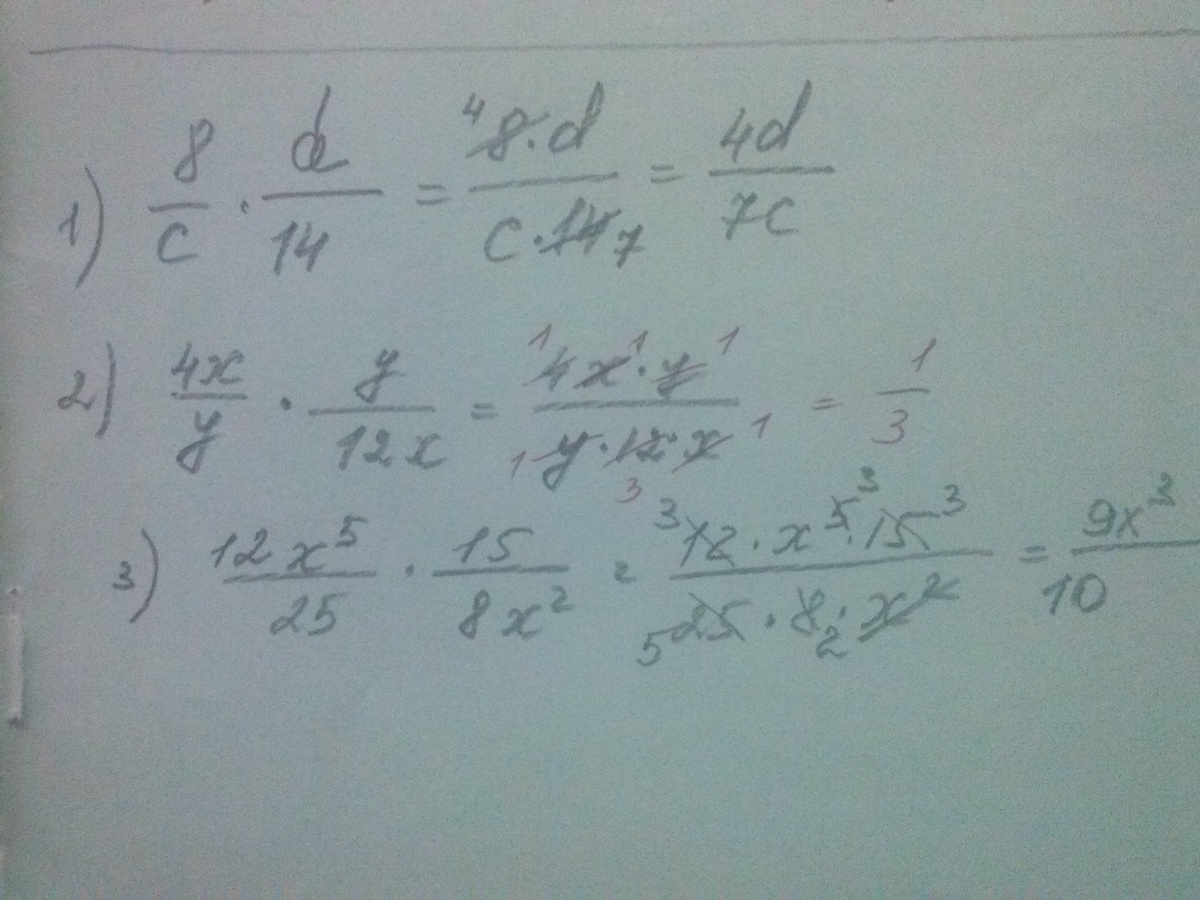 1) 8/c · d/14 = ⁴8·d/c·14 7 = 4d/7c
2) 4x/y · y/12x = ¹4x¹·y¹/1 y·12 3·x 1 = 1/3
3) 12x⁵/25 · 15/8x² = ³12·x⁵ ³·15 ³/5 25·8 2·x² = 9x³/10